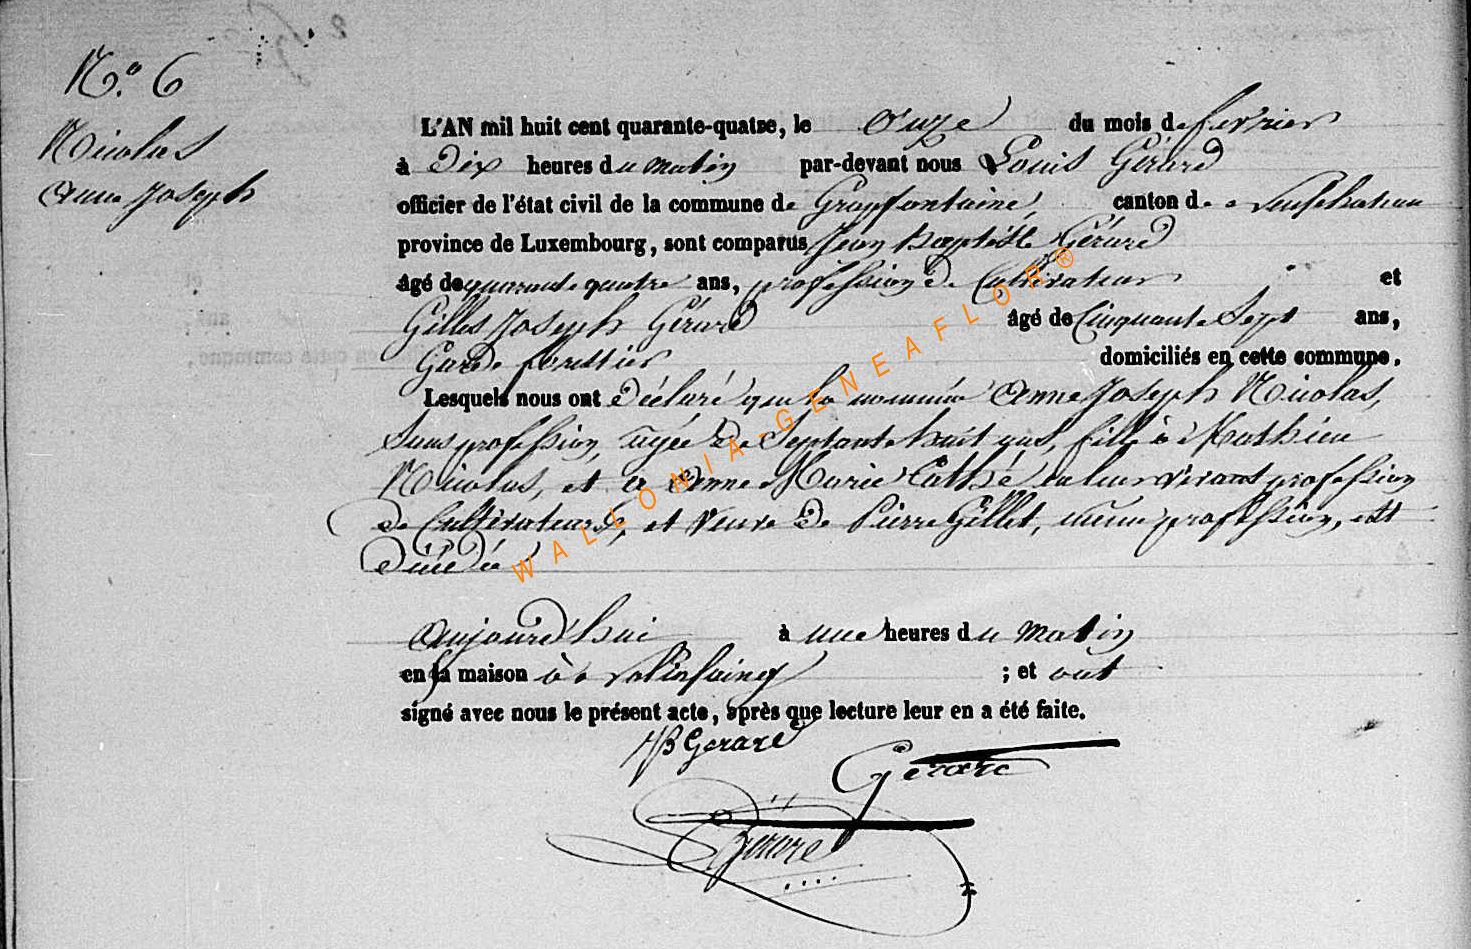 N.° 6
Nicolas
Anne Joseph
L'AN mil huit cent quarante-quatre, le Onze du mois de fevrier
à Dix heures du matin par-devant nous Louis Gérard
officier de l'état civil de la commune de Grapfontaine, canton de Neufchateau
province de Luxembourg, sont comparus Jean Baptiste Gérard
âgé de quarante quatre ans, profession de Cultivateur et
Gilles Joseph Gérard âgé de Cinquante Sept ans,
Garde forestier domiciliés en cette commune.
Lesquels nous ont Déclaré que la nommée Anne Joseph Nicolas,
Sans profession, agée de Septante huit ans, fille à Mathieu
Nicolas, et à Anne Marie Cathé en leur vivant profession
de Cultivateurs, et veuve de Pierre Gillet, meme profession, est
Décédée
Aujourd'hui à une heures du matin
en sa maison à ; et ont
signé avec nous le présent acte, après que lecture leur en a été faite.
JB Gerard
Gerard
Gérard
WALLONIA-GENEAFLOR®